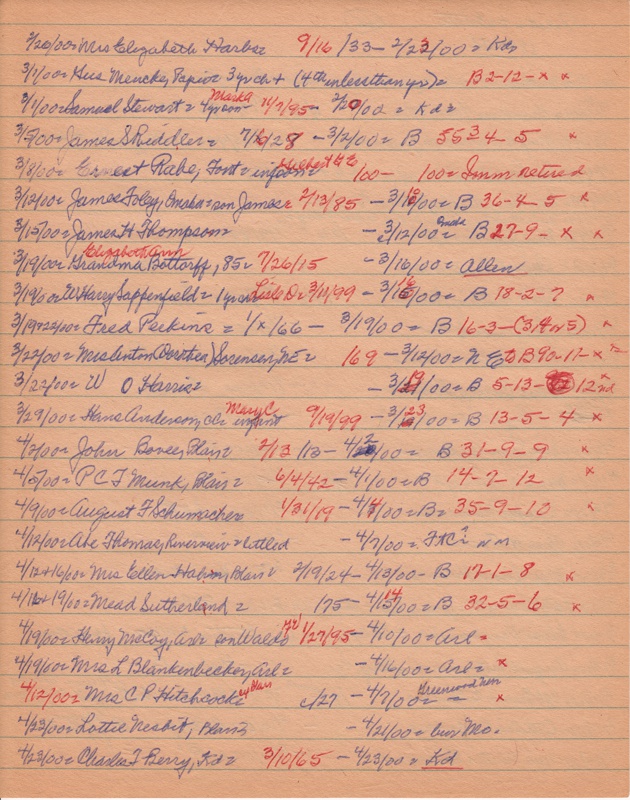 2/20/00= Mrs Elizabeth Harless 9/16/33 - 2/23/00 = Kd
3/1/00= Gus Mencke, Tapio= 3 yr ch + (4th in less than yr)= B 2-12-x x
3/1/00= Samuel Stewart= 4 yr son Mark A 11/7/95 - 2/20/00 = Kd=
3/5/00= James S Riddler= 7/6/28 - 3/2/00= B 55 34-5 x
3/8/00= Ernest Rabe, Font= infant= Helbert G E 100- 100= Imm retired
3/12/00= James Foley, Omaha= son James= 2/13/85 - 3/10/00= B 36-4-5 x
3/15/00= James H Thompson= - 3/12/00= Omaha B 27-9-x x
3/19/00= Grandma Elizabeth Ann Bottorff, 85= 7/26/15 - 3/16/00= Allen
3/19/00= W Harry Sappenfield= 1 yr Lisle D= 3/11/99 - 3/16/00= B 18-2-7 x
3/19+22/00= Fred Perkins= 1/x/66 - 3/19/00= B 16-3-(3,4 or 5) x
3/22/00= Mrs Anton (Dorthea) Sorensen, NE= 169 - 3/12/00= N E B 90-11-x
3/22/00= W O Harris= - 3/19/00= B 5-13- 12 2nd x
3/29/00= Hans Anderson, infant Mary C 9/19/99 - 3/23/00= B 13-5-4 x
4/2/00= John Bovee, Blair= 2/13/13- 4/2/00= B 31-9-9 x
4/5/00= P C T Munk, Blair= 6/4/42 - 4/1/00= B 14-7-12 x
4/9/00= August F Schumacher 1/31/19 - 4/4/00= B= 35-9-10 x
4/12/00= Abe Thomas, Riverview= - 4/7/00= FtC
4/12+16/00= Mrs Ellen Blair= 2/19/24 - 4/13/00- B 17-1-8 x
4/16+19/00= Mead Sutherland= 175 - 4/14/00= B 32-5-6 x
4/19/00= Henry McCoy, Arl= son Waldo 1/27/95 - 4/10/00= Arl=
4/19/00= Mrs L Blankenbecker, Arl= - 4/16/00= Arl= x
4/12/00= Mrs C P Hitchcock= c/27 - 4/7/00= Greenwood x
4/23/00= Lottie Nesbitt, Blair= - 4/21/00= bur Mo.
4/23/00= Charles F Berry, Kd= 3/10/65 - 4/23/00= Kd